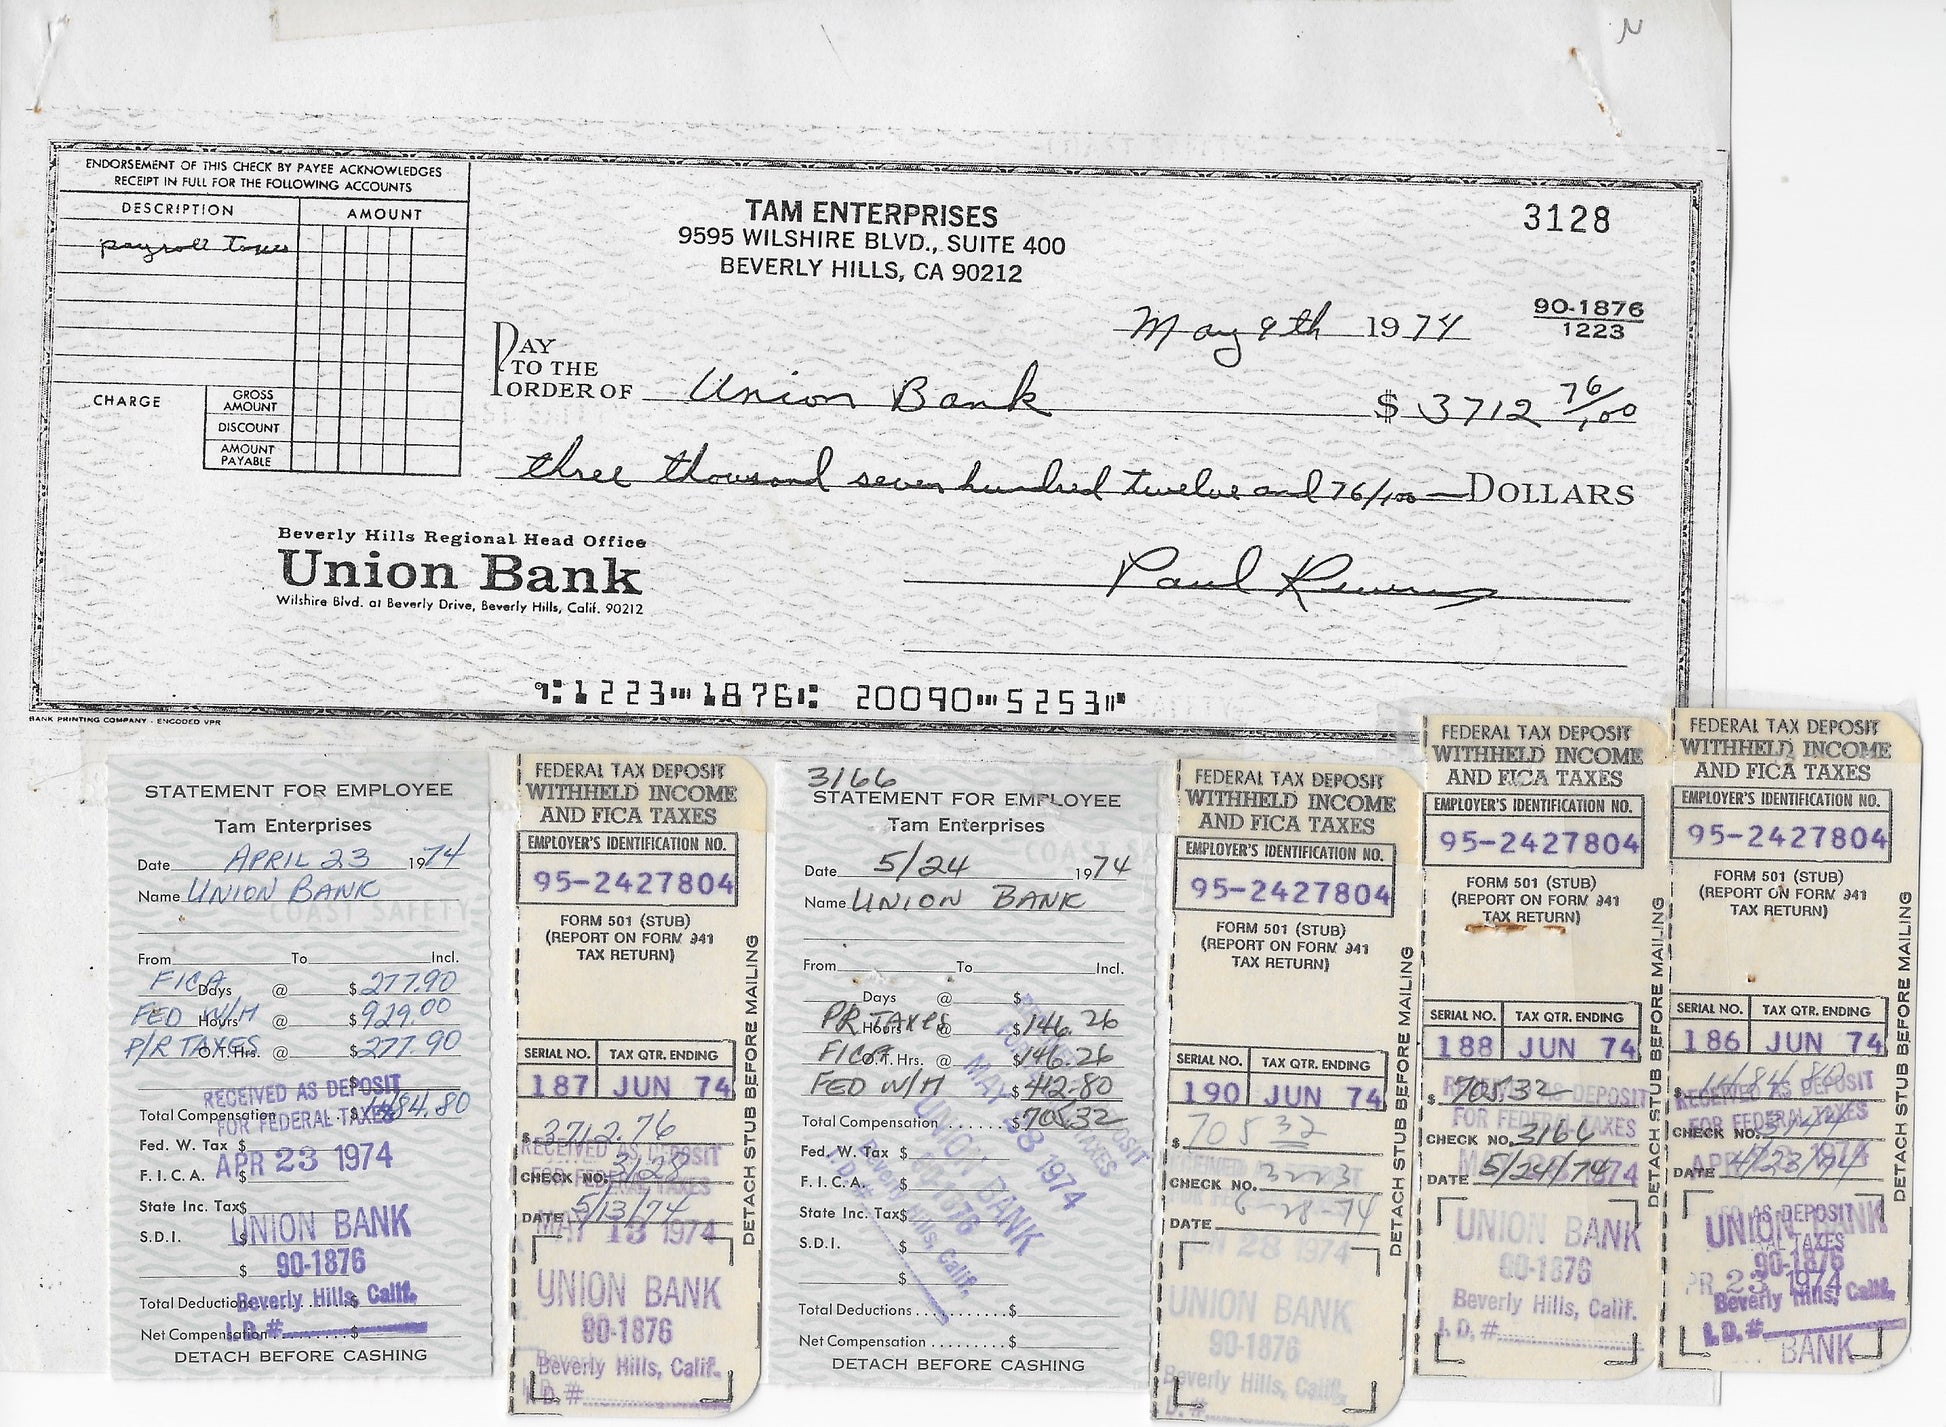 ENDORSEMENT OF THIS CHECK BY PAYEE ACKNOWLEDGES
RECEIPT IN FULL FOR THE FOLLOWING ACCOUNTS
DESCRIPTION AMOUNT
payroll taxes
CHARGE
GROSS AMOUNT
DISCOUNT
AMOUNT PAYABLE
TAM ENTERPRISES
9595 WILSHIRE BLVD., SUITE 400
BEVERLY HILLS, CA 90212
3128
May 9th 1974
90-1876
1223
PAY
TO THE
ORDER OF Union Bank $ 3712 76/100
three thousand seven hundred twelve and 76/100 DOLLARS
Beverly Hills Regional Head Office
Union Bank
Wilshire Blvd. at Beverly Drive, Beverly Hills, Calif. 90212
Paul
1223 1876 20090 5253
BANK PRINTING COMPANY - ENCODED VPR
STATEMENT FOR EMPLOYEE
Tam Enterprises
Date APRIL 23 1974
Name UNION BANK
COAST SAFETY
From To Incl.
FICA Days @ $ 277.90
FED W/H Hours @ $ 929.00
P/R TAXES O.T. Hrs. @ $ 277.90
$
RECEIVED AS DEPOSIT
Total Compensation $ 1484.80
FOR FEDERAL TAXES
Fed. W. Tax $
APR 23 1974
F. I. C. A. $
State Inc. Tax $
UNION BANK
S.D.I. $
$ 90-1876
Total Deductions $
Beverly Hills, Calif.
Net Compensation $
I.D.#
DETACH BEFORE CASHING
FEDERAL TAX DEPOSIT
WITHHELD INCOME
AND FICA TAXES
EMPLOYER'S IDENTIFICATION NO.
95-2427804
FORM 501 (STUB)
(REPORT ON FORM 941
TAX RETURN)
SERIAL NO. TAX QTR. ENDING
187 JUN 74
$ 3712.76
RECEIVED AS DEPOSIT
CHECK NO. 3128
FOR FEDERAL TAXES
DATE 5/13/74
MAY 13 1974
UNION BANK
90-1876
Beverly Hills, Calif.
I.D.#
DETACH STUB BEFORE MAILING
3166
STATEMENT FOR EMPLOYEE
Tam Enterprises
Date 5/24 1974
Name UNION BANK
From To Incl.
Days @ $
PR TAXES Hours @ $ 146.26
FICA O.T. Hrs. @ $ 146.26
FED W/H $ 412.80
Total Compensation $ 705.32
Fed. W. Tax $
F. I. C. A. $
State Inc. Tax $
S.D.I. $
$
Total Deductions $
Net Compensation $
DETACH BEFORE CASHING
MAY 28 1974
UNION BANK
90-1876
Beverly Hills, Calif.
I.D.#
FEDERAL TAX DEPOSIT
WITHHELD INCOME
AND FICA TAXES
EMPLOYER'S IDENTIFICATION NO.
95-2427804
FORM 501 (STUB)
(REPORT ON FORM 941
TAX RETURN)
SERIAL NO. TAX QTR. ENDING
190 JUN 74
$ 705 32
CHECK NO. 3223
DATE 6-28-74
28 1974
UNION BANK
90-1876
Beverly Hills, Calif.
DETACH STUB BEFORE MAILING
FEDERAL TAX DEPOSIT
WITHHELD INCOME
AND FICA TAXES
EMPLOYER'S IDENTIFICATION NO.
95-2427804
FORM 501 (STUB)
(REPORT ON FORM 941
TAX RETURN)
SERIAL NO. TAX QTR. ENDING
188 JUN 74
$ 705.32
RECEIVED AS DEPOSIT
FOR FEDERAL TAXES
CHECK NO. 3166
DATE 5/24/74
UNION BANK
90-1876
Beverly Hills, Calif.
I.D.#
DETACH STUB BEFORE MAILING
FEDERAL TAX DEPOSIT
WITHHELD INCOME
AND FICA TAXES
EMPLOYER'S IDENTIFICATION NO.
95-2427804
FORM 501 (STUB)
(REPORT ON FORM 941
TAX RETURN)
SERIAL NO. TAX QTR. ENDING
186 JUN 74
$ 1484.80
RECEIVED AS DEPOSIT
FOR FEDERAL TAXES
CHECK NO. 3144
DATE 4/23/74
AS DEPOSIT
UNION BANK
TAXES
90-1876
23 1974
Beverly Hills, Calif.
I.D.#
BANK
DETACH STUB BEFORE MAILING